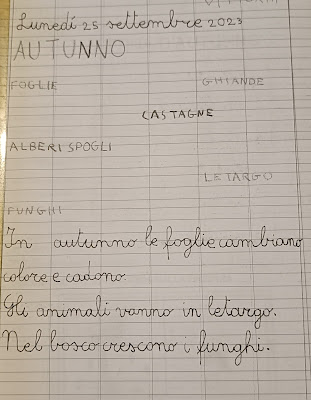 Lunedì 25 settembre 2023
AUTUNNO
FOGLIE GHIANDE
CASTAGNE
ALBERI SPOGLI
LETARGO
FUNGHI
In autunno le foglie cambiano
colore e cadono.
Gli animali vanno in letargo.
Nel bosco crescono i funghi.